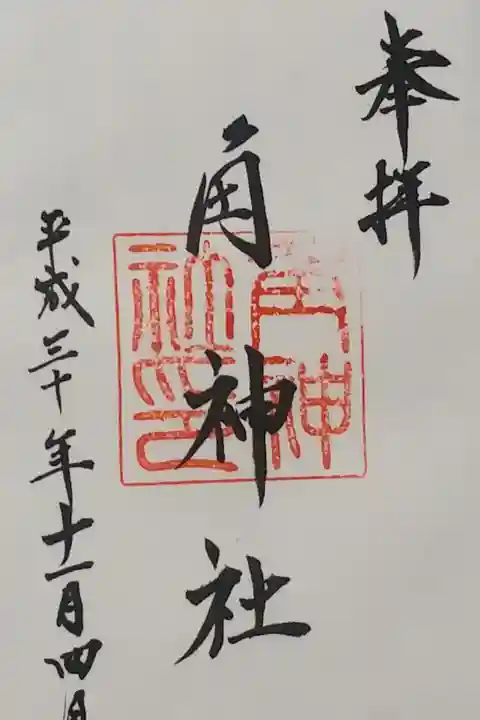 奉拝
角神社
平成三十年十一月四日
神
社印